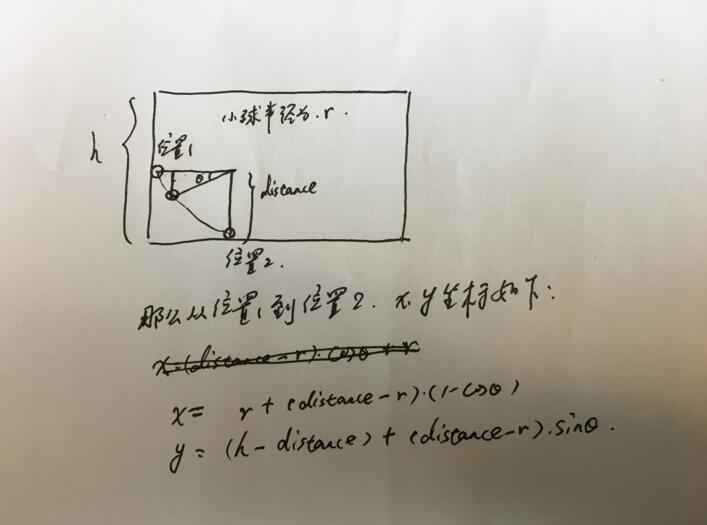 小球半径为.r.
h
位置1
θ
distance
位置2.
那么从位置1到位置2.x.y坐标如下:
x=(distance-r)·cosθ+r
x= r+(distance-r)·(1-cosθ)
y=(h-distance)+(distance-r)·sinθ.